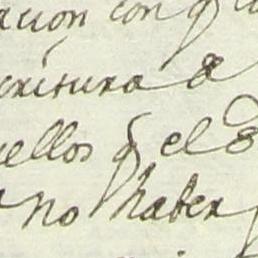 acion con q
critura a
ellos q el
no haber